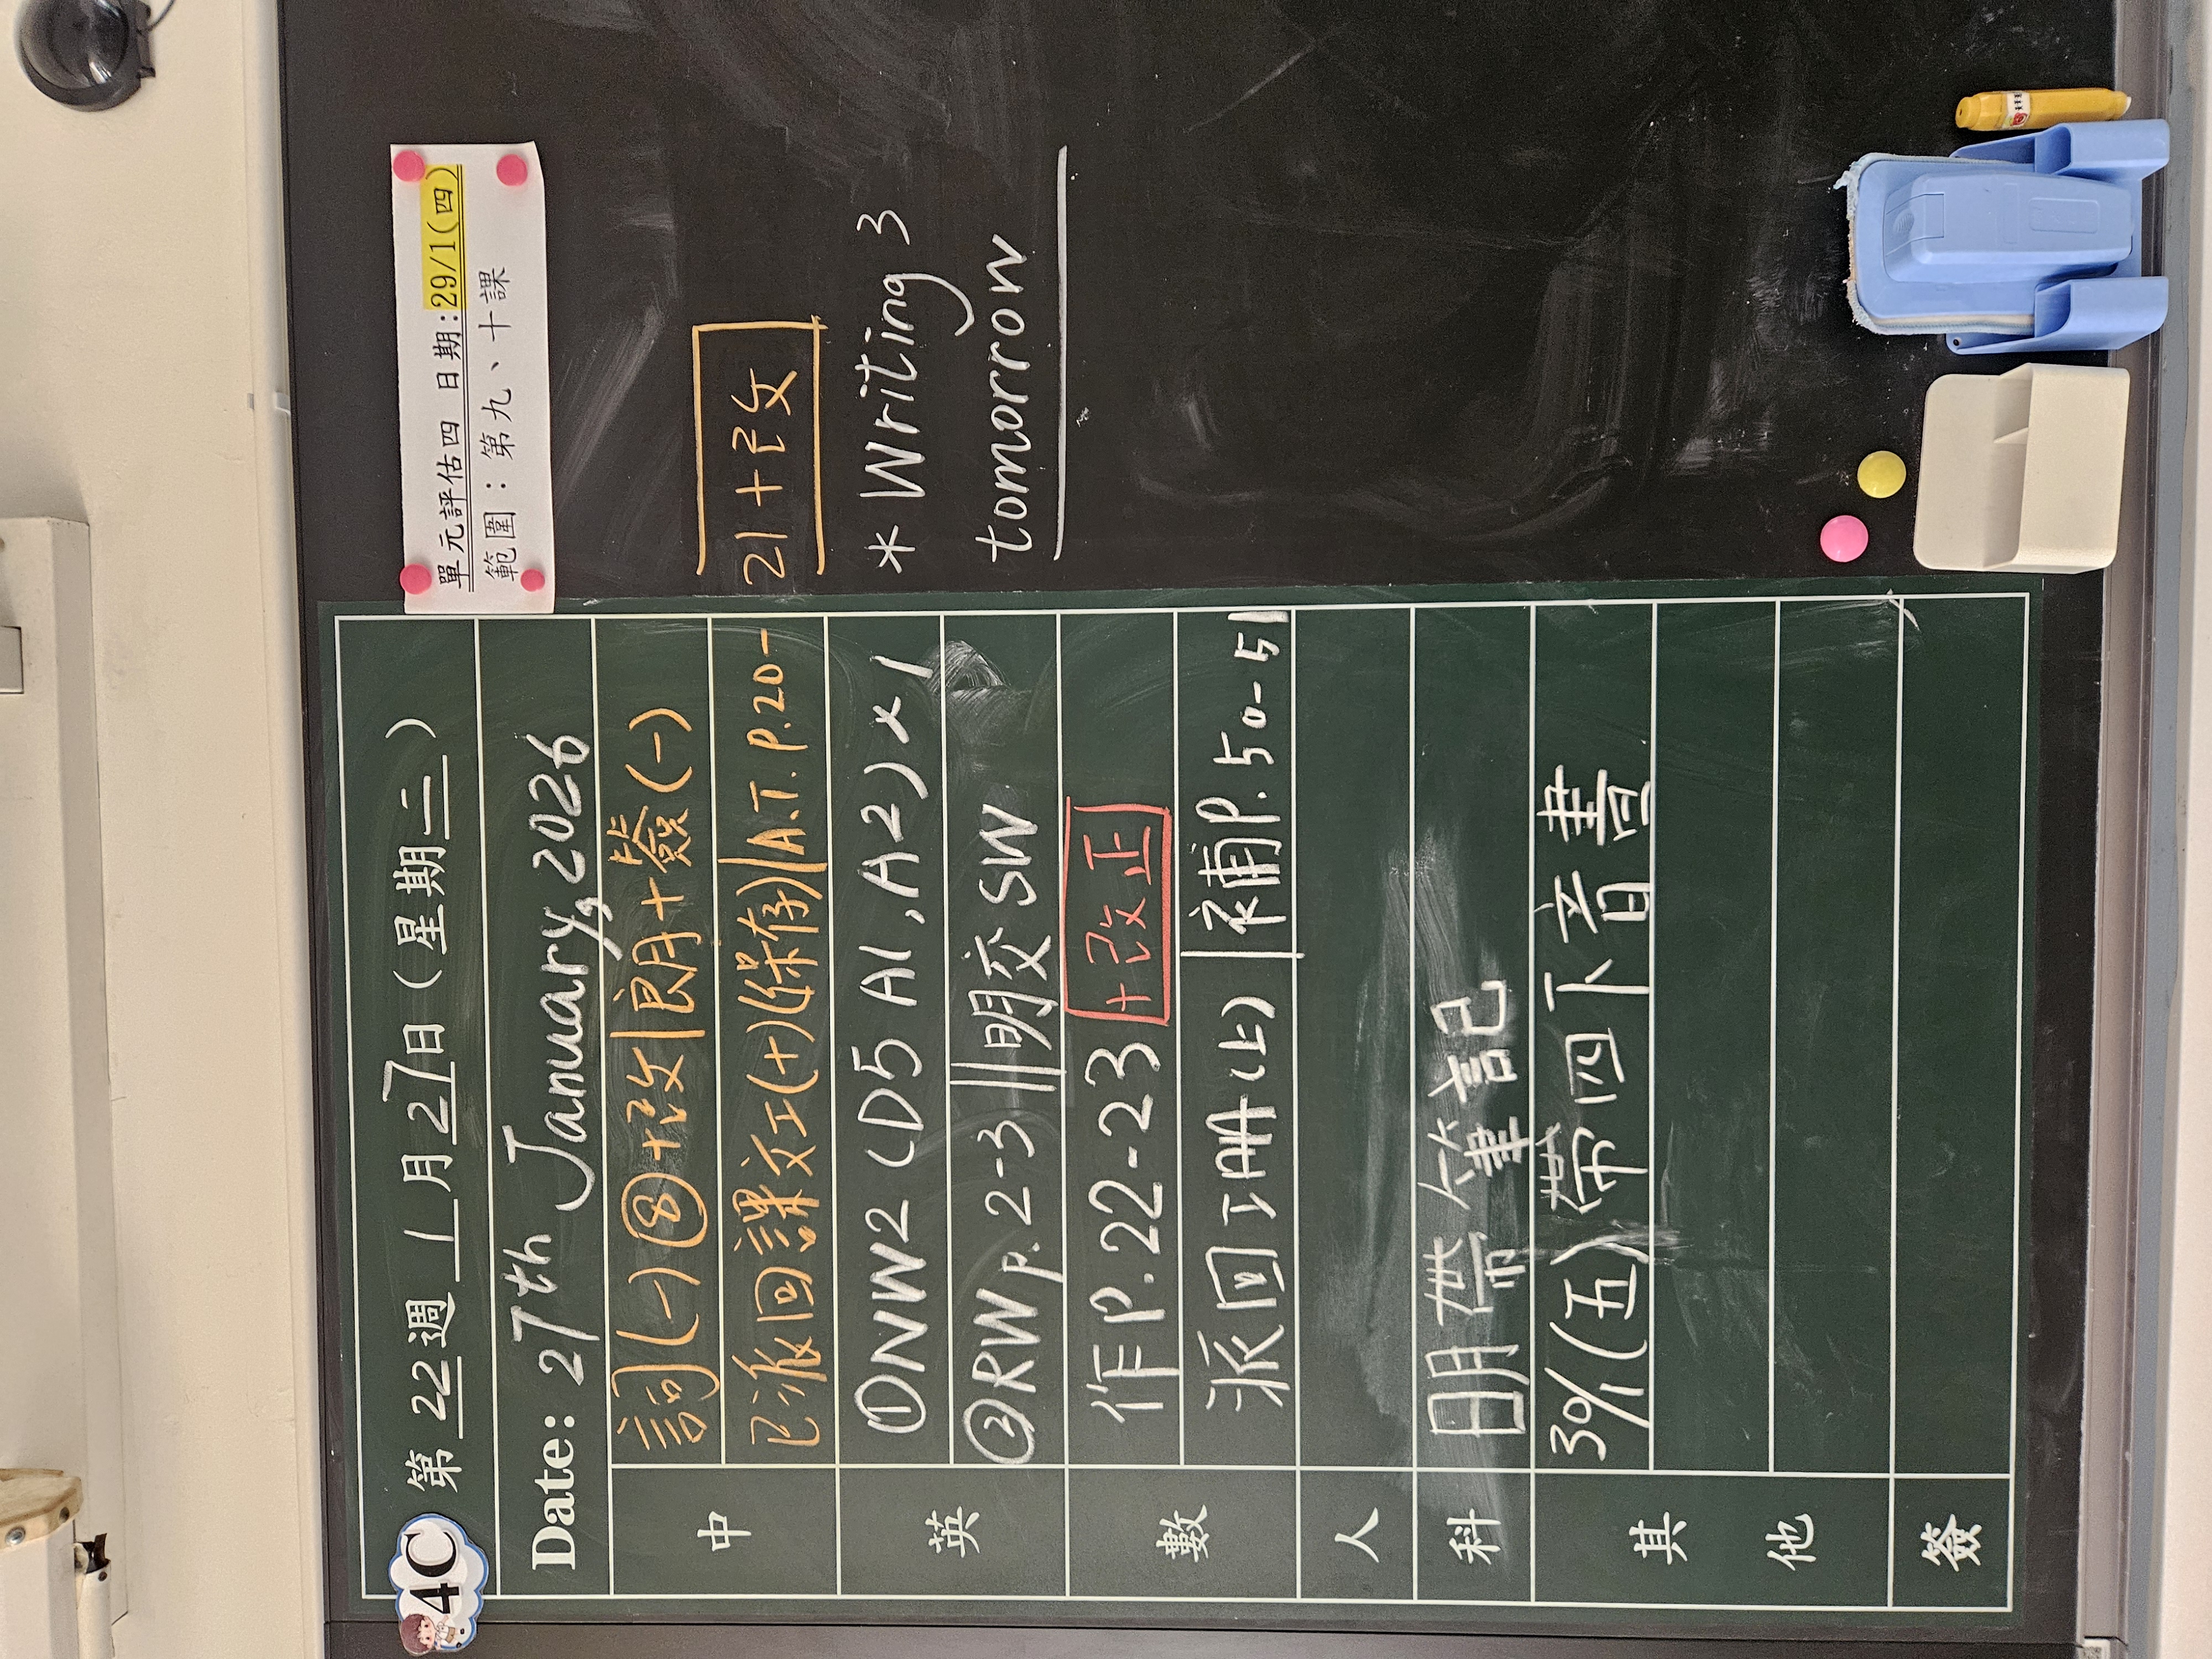 4C 第22週 1月27日(星期二)
Date: 27th January, 2026
中
詞(一)⑧+改|朗+簽(一)
已派回課文工(十)(保存)|A.T. p.20-21+改
英
①NW2 (D5 A1, A2) x 1
②RW p.2-3 || 明交SW
數
作P.22-23 +改正
派回工AA(上) | 補P.50-51
人
科
明帶筆記
其他
30/1(五)帶四下音書
簽
單元評估四 日期:29/1(四)
範圍:第九、十課
* Writing 3
tomorrow